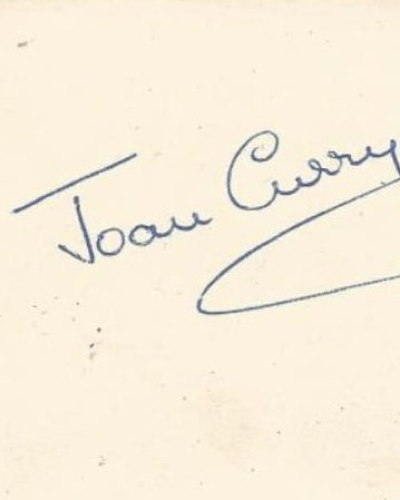 Joan Curry